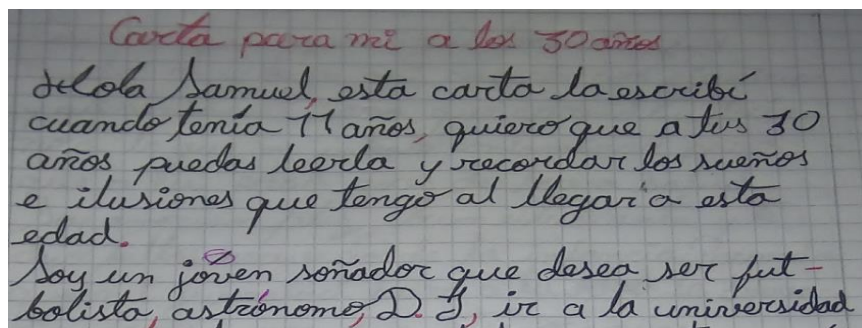 Carta para mi a los 30 años
Hola Samuel, esta carta la escribí
cuando tenía 11 años, quiero que a tus 30
años puedas leerla y recordar los sueños
e ilusiones que tengo al llegar a esta
edad.
Soy un joven soñador que desea ser fut-
bolista, astrónomo, D.J, ir a la universidad